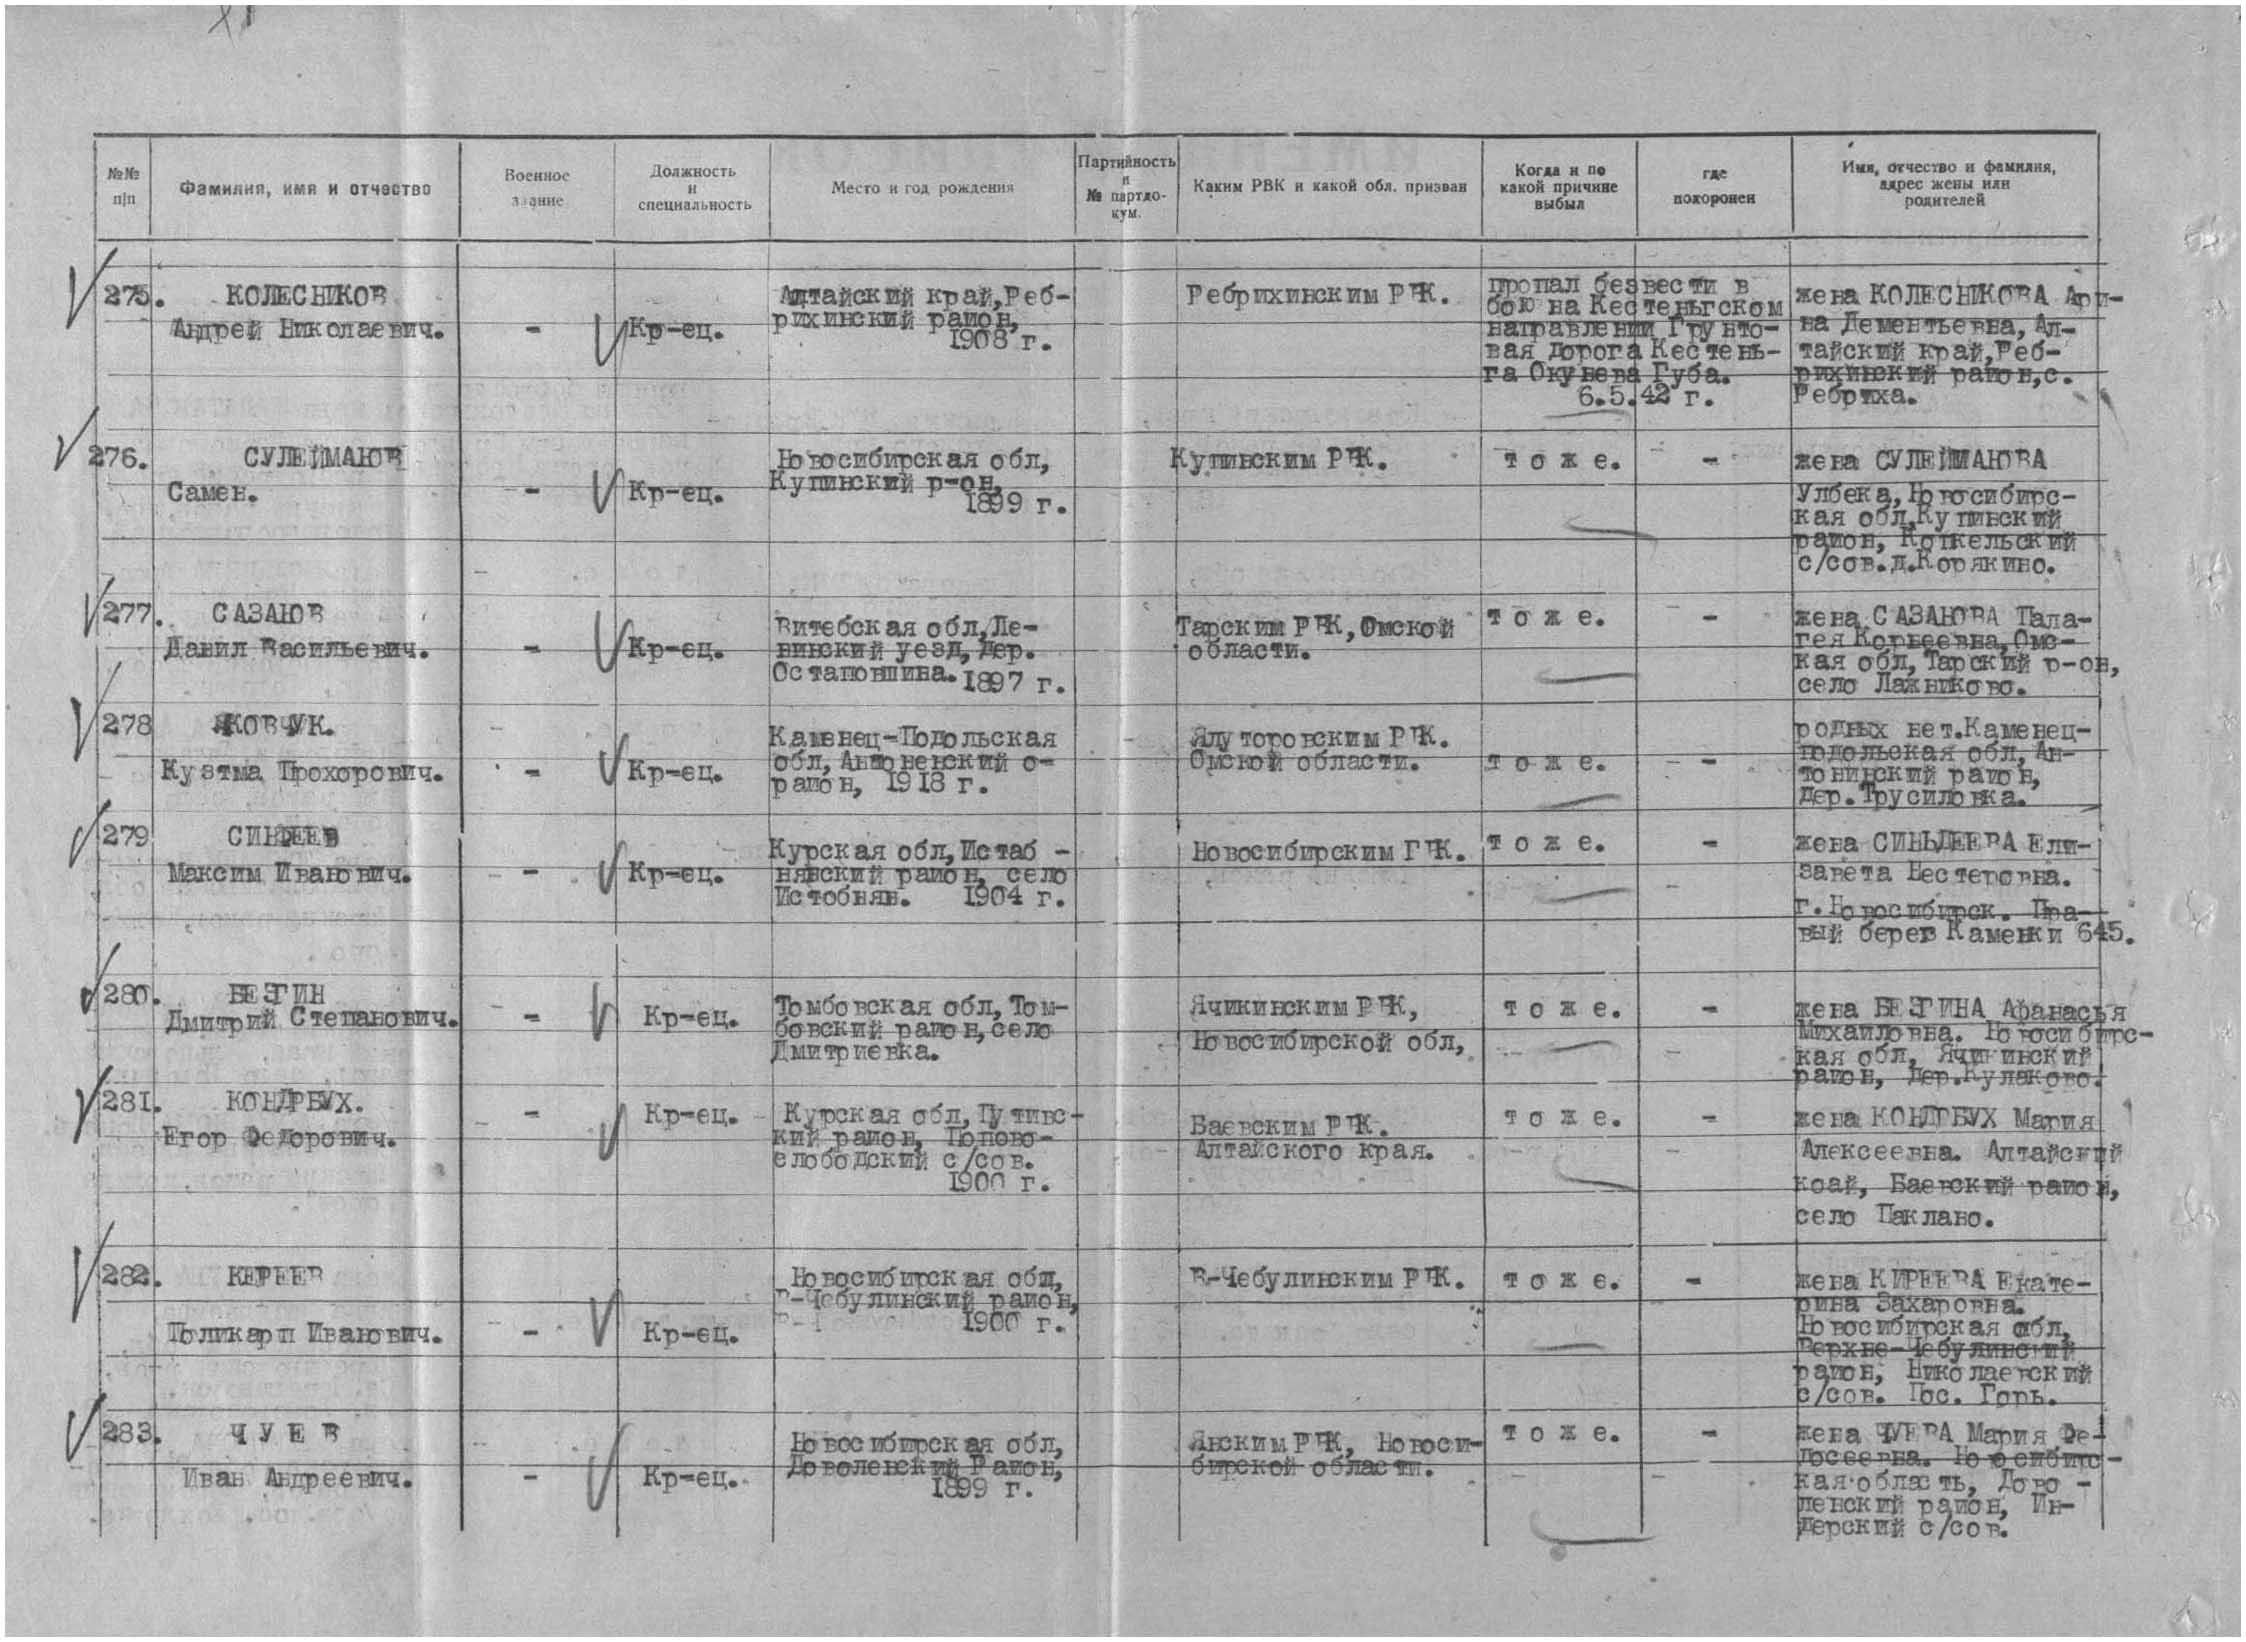 №№ п/п
Фамилия, имя и отчество
Военное звание
Должность и специальность
Место и год рождения
Партийность и № партдокум.
Каким РВК и какой обл. призван
Когда и по какой причине выбыл
где похоронен
Имя, отчество и фамилия, адрес жены или родителей
275. КОЛЕСНИКОВ
Андрей Николаевич.
-
Кр-ец.
Алтайский край, Реб-
рихинский район,
1908 г.
Ребрихинским РВК.
пропал безвести в
бою на Кестеньгском
направлении Грунто-
вая дорога Кестень-
га Окунева Губа.
6.5.42 г.
жена КОЛЕСНИКОВА Ари-
на Дементьевна, Ал-
тайский край, Реб-
рихинский район, с.
Ребриха.
276. СУЛЕЙМАНОВ
Самен.
-
Кр-ец.
Новосибирская обл,
Купинский р-он,
1899 г.
Купинским РВК.
т о ж е.
-
жена СУЛЕЙМАНОВА
Улбека, Новосибирс-
кая обл, Купинский
район, Копкельский
с/сов. д. Корякино.
277. САЗАНОВ
Данил Васильевич.
-
Кр-ец.
Витебская обл, Ле-
нинский уезд, Дер.
Остаповшина. 1897 г.
Тарским РВК, Омской
области.
т о ж е.
-
жена САЗАНОВА Пала-
гея Корнеевна, Омс-
кая обл, Тарский р-он,
село Лажниково.
278 ЯКОВЧУК.
Кузтма Прохорович.
-
Кр-ец.
Каменец-Подольская
обл, Антоненский о-
район, 1918 г.
Ялуторовским РВК.
Омской области.
т о ж е.
-
родных нет. Каменец-
подольская обл, Ан-
тонинский район,
дер. Трусиловка.
279 СИНДЕЕВ
Максим Иванович.
-
Кр-ец.
Курская обл, Истаб -
нянский район, село
Истобняв. 1904 г.
Новосибирским ГВК.
т о ж е.
-
жена СИНЬДЕЕВА Ели-
завета Нестеровна.
г. Новосибирск. Пра-
вый берег Каменки 645.
280. БЕЗГИН
Дмитрий Степанович.
-
Кр-ец.
Томбовская обл, Том-
бовский район, село
Дмитриевка.
Ячикинским РВК,
Новосибирской обл,
т о ж е.
-
жена БЕЗГИНА Афанасья
Михайловна. Новосибирс-
кая обл, Ячикинский
район, дер. Кулаково.
281. КОНДРБУХ.
Егор Федорович.
-
Кр-ец.
Курская обл, Путивс-
кий район, Попово-
слободский с/сов.
1900 г.
Баевским РВК.
Алтайского края.
т о ж е.
-
жена КОНДРБУХ Мария
Алексеевна. Алтайский
коай, Баевский район,
село Паклано.
282. КЕРЕЕВ
Поликарп Иванович.
-
Кр-ец.
Новосибирская обл,
В-Чебулинский район,
1900 г.
В-Чебулинским РВК.
т о ж е.
-
жена КИРЕЕВА Екате-
рина Захаровна.
Новосибирская обл,
Верхне-Чебулинский
район, Николаевский
с/сов. Пос. Горь.
283. Ч У Е В
Иван Андреевич.
-
Кр-ец.
Новосибирская обл,
Доволенский Район,
1899 г.
Янским РВК, Новоси-
бирской области.
т о ж е.
-
жена ЧУЕВА Мария Фе-
досеевна. Новосибирс-
кая область, Дово -
ленский район, Ин-
дерский с/сов.